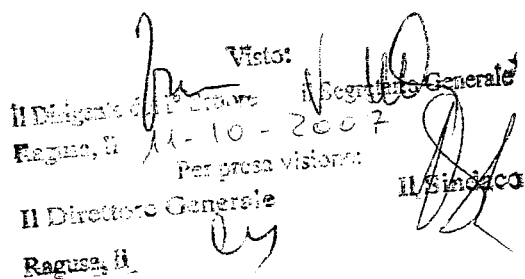 Visto:
Il Dirigente del 1° Settore Il Segretario Generale
Ragusa, lì 11-10-2007
Per presa visione:
Il Direttore Generale Il Sindaco
Ragusa, lì